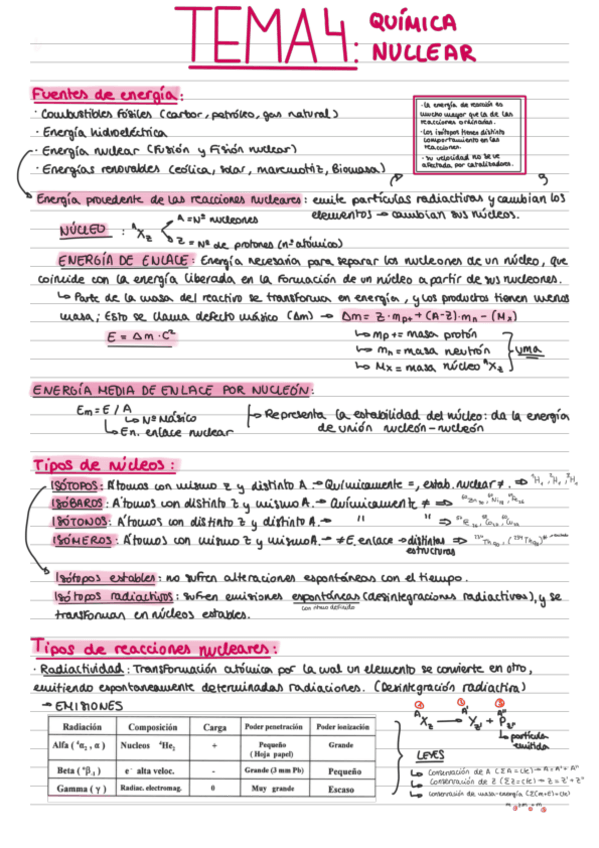 TEMA 4: QUÍMICA NUCLEAR
Fuentes de energía:
· Combustibles fósiles (carbon, petróleo, gas natural)
· Energía hidroeléctrica
· Energía nuclear (Fusión y Fisión nuclear)
· Energías renovables (eólica, solar, maremotriz, Biomasa)
· La energía de reacción es
mucho mayor que la de las
reacciones ordinarias.
· Los isótopos tienen distinto
comportamiento en las
reacciones.
· Su velocidad no se ve
afectada por catalizadores.
Energía procedente de las reacciones nucleares: emite partículas radiactivas y cambian los
elementos → cambian sus núcleos.
NÚCLEO : ᴬXz
A = Nº nucleones
Z = Nº de protones (nº atómico)
ENERGÍA DE ENLACE: Energía necesaria para separar los nucleones de un núcleo, que
coincide con la energía liberada en la formación de un núcleo a partir de sus nucleones.
↳ Parte de la masa del reactivo se transforma en energía, y los productos tienen menos
masa; Esto se llama defecto másico (Δm) → Δm = Z · mp+ + (A-Z) · mn - (Mx)
E = Δm · C²
↳ mp+ = masa protón
↳ mn = masa neutrón
↳ Mx = masa núcleo ᴬXz
uma
ENERGÍA MEDIA DE ENLACE POR NUCLEÓN:
Em = E / A
↳ Nº Másico
↳ En. enlace nuclear
↳ Representa la estabilidad del núcleo: da la energía
de unión nucleón-nucleón
Tipos de núcleos:
ISÓTOPOS: Átomos con mismo z y distinto A. → Químicamente =, estab. nuclear ≠. ⇒ ¹H₁, ²H₁, ³H₁
ISÓBAROS: Átomos con distinto z y mismo A. → Químicamente ≠ ⇒
ISÓTONOS: Átomos con distinto z y distinto A. → " " ⇒
ISÓMEROS: Átomos con mismo z y mismo A. → ≠ E. enlace → distintas estructuras ⇒
Isótopos estables: no sufren alteraciones espontáneas con el tiempo.
Isótopos radiactivos: sufren emisiones espontáneas (desintegraciones radiactivas), y se
con ritmo definido
transforman en núcleos estables.
Tipos de reacciones nucleares:
· Radiactividad: Transformación atómica por la cual un elemento se convierte en otro,
emitiendo espontaneamente determinadas radiaciones. (Desintegración radiactiva)
→ EMISIONES
Radiación Composición Carga Poder penetración Poder ionización
Alfa (⁴α₂, α) Nucleos ⁴He₂ + Pequeño (Hoja papel) Grande
Beta (⁰β₋₁) e⁻ alta veloc. - Grande (3 mm Pb) Pequeño
Gamma (γ) Radiac. electromag. 0 Muy grande Escaso
① ② ③
ᴬXz → ᴬ'Yz' + ᴬ''Pz''
↳ partícula
emitida
LEYES
↳ Conservación de A (ΣA = cte) → A = A' + A''
↳ Conservación de Z (ΣZ = cte) → Z = Z' + Z''
↳ Conservación de masa-energía (Σ(m+E) = cte)